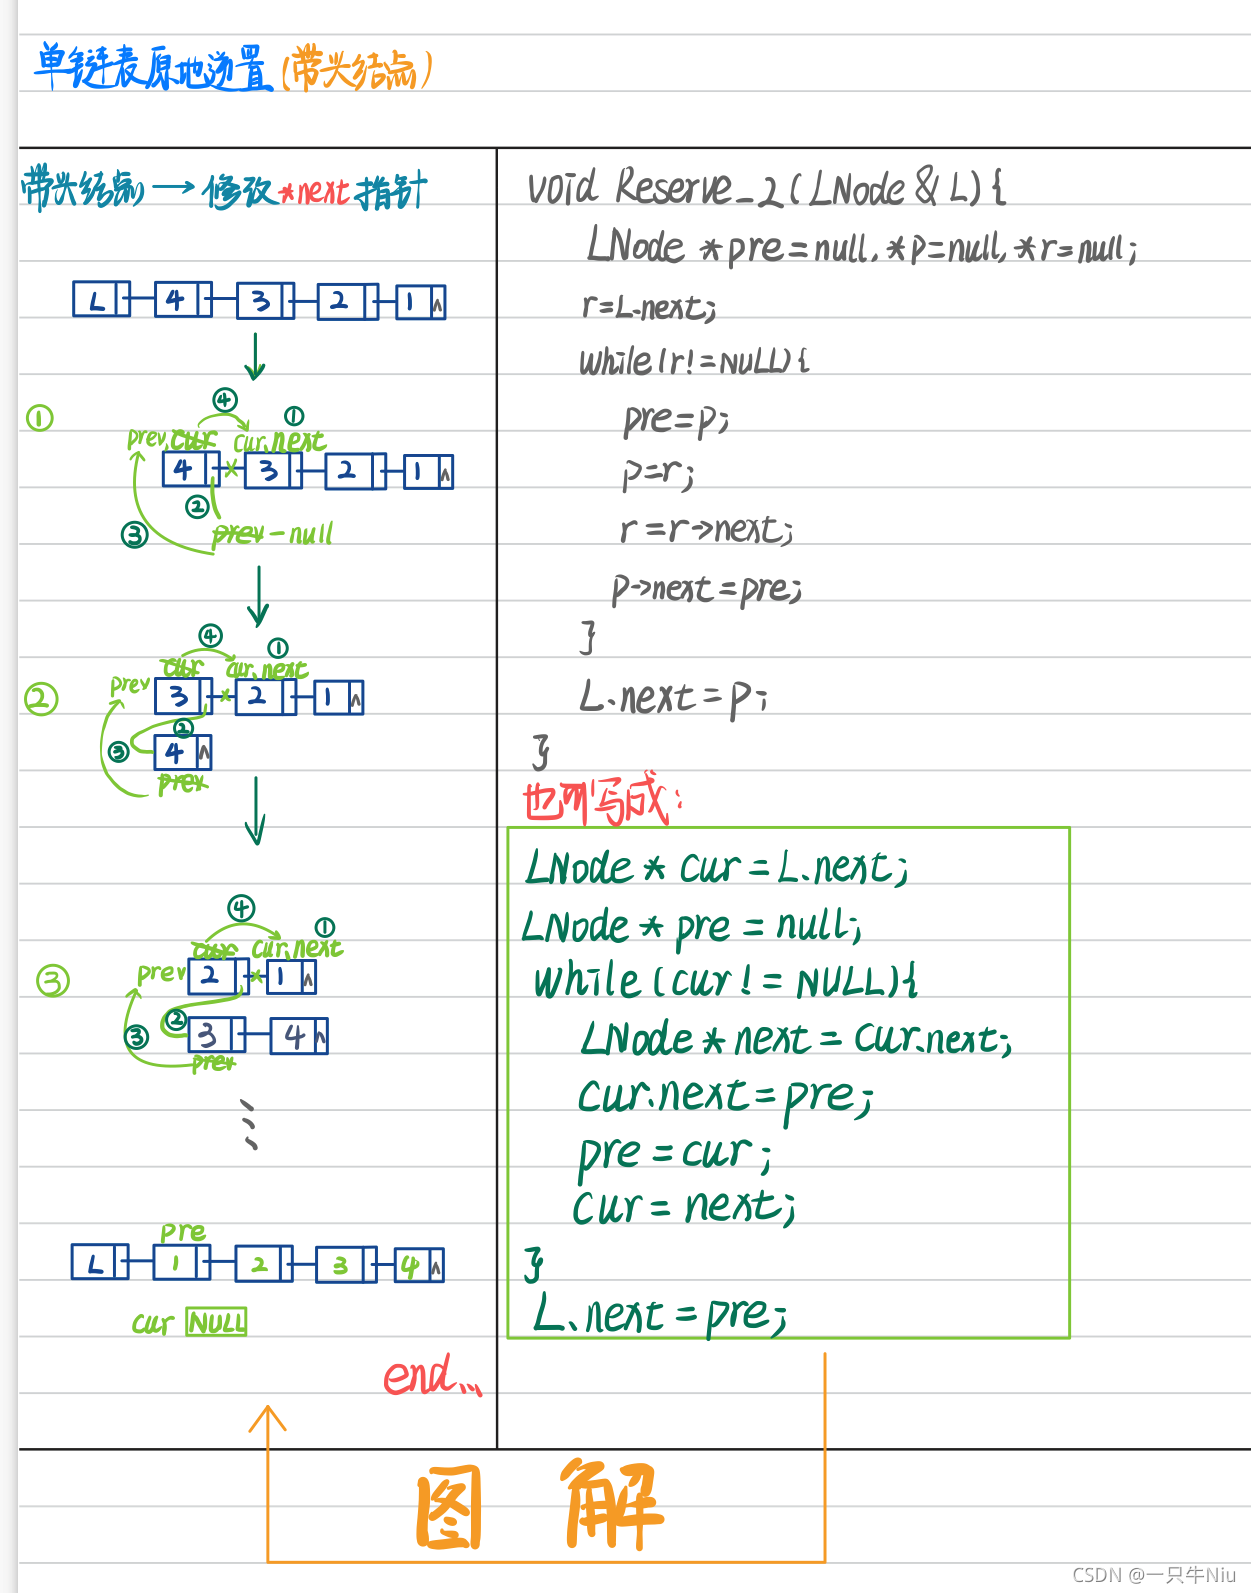 单链表原地逆置(带头结点)
带头结点 → 修改*next指针
L 4 3 2 1 ^
①
④ ①
prev cur cur.next
4 × 3 2 1 ^
②
③ prev-null
④ ①
cur cur.next
② prev 3 × 2 1 ^
②
③ 4 ^
prev
④ ①
cur cur.next
③ prev 2 × 1 ^
②
③ 3 4 ^
prev
pre
L 1 2 3 4 ^
cur NULL
end...
void Reserve_2(LNode & L){
LNode *pre=null,*p=null,*r=null;
r=L.next;
while(r!=NULL){
pre=p;
p=r;
r=r→next;
p→next=pre;
}
L.next=p;
}
也可写成:
LNode * cur = L.next;
LNode * pre = null;
while (cur != NULL){
LNode * next = cur.next;
cur.next = pre;
pre = cur;
cur = next;
}
L.next = pre;
图 解
CSDN @一只牛Niu